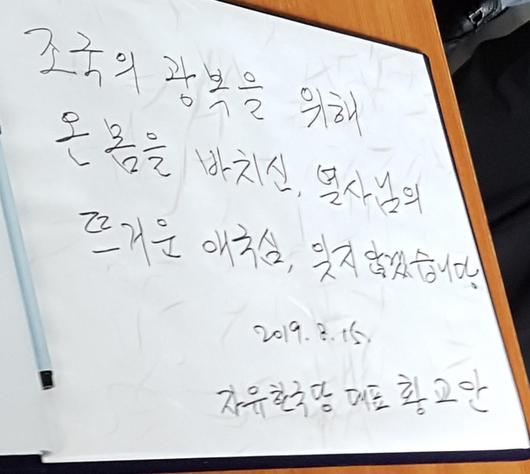 조국의 광복을 위해
온 몸을 바치신, 열사님의
뜨거운 애국심, 잊지 않겠습니다.
2019. 8. 15.
자유한국당 대표 황교안